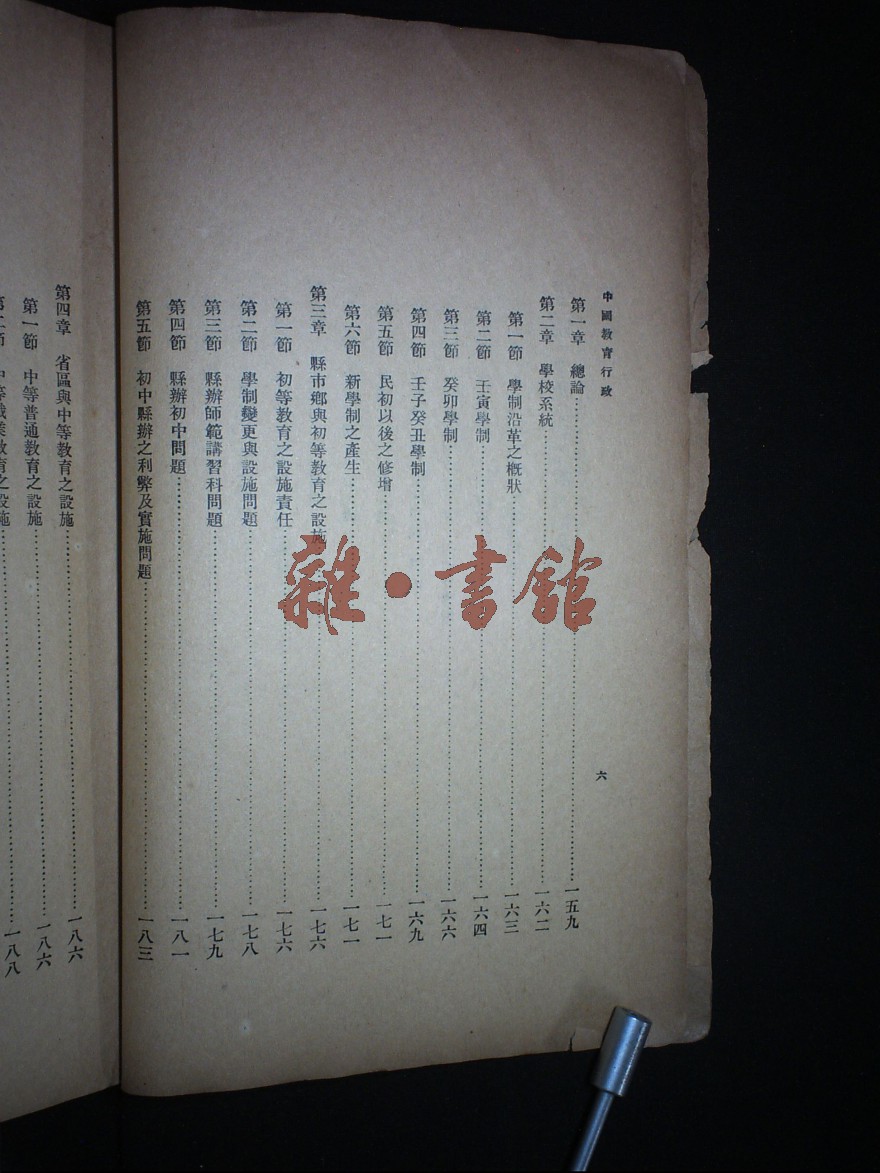 中國教育行政
第一章 總論…………一五九
第二章 學校系統…………一六二
第一節 學制沿革之概狀…………一六三
第二節 壬寅學制…………一六四
第三節 癸卯學制…………一六六
第四節 壬子癸丑學制…………一六九
第五節 民初以後之修增…………一七一
第六節 新學制之產生…………一七一
第三章 縣市鄉與初等教育之設施…………一七六
第一節 初等教育之設施責任…………一七六
第二節 學制變更與設施問題…………一七八
第三節 縣辦師範講習科問題…………一七九
第四節 縣辦初中問題…………一八一
第五節 初中縣辦之利弊及實施問題…………一八三
六
第四章 省區與中等教育之設施…………一八六
第一節 中等普通教育之設施…………一八六
第二節 中等職業教育之設施…………一八八
雜·書館